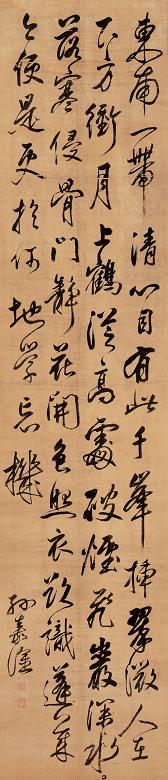 東南一帶清心目有此千峯插翠微人在
下方衝月上鶴從高處破煙飛巖深水
落寒侵骨門靜花開色照衣欲識蓬萊
今便是更於何地學忘機
孫嘉淦